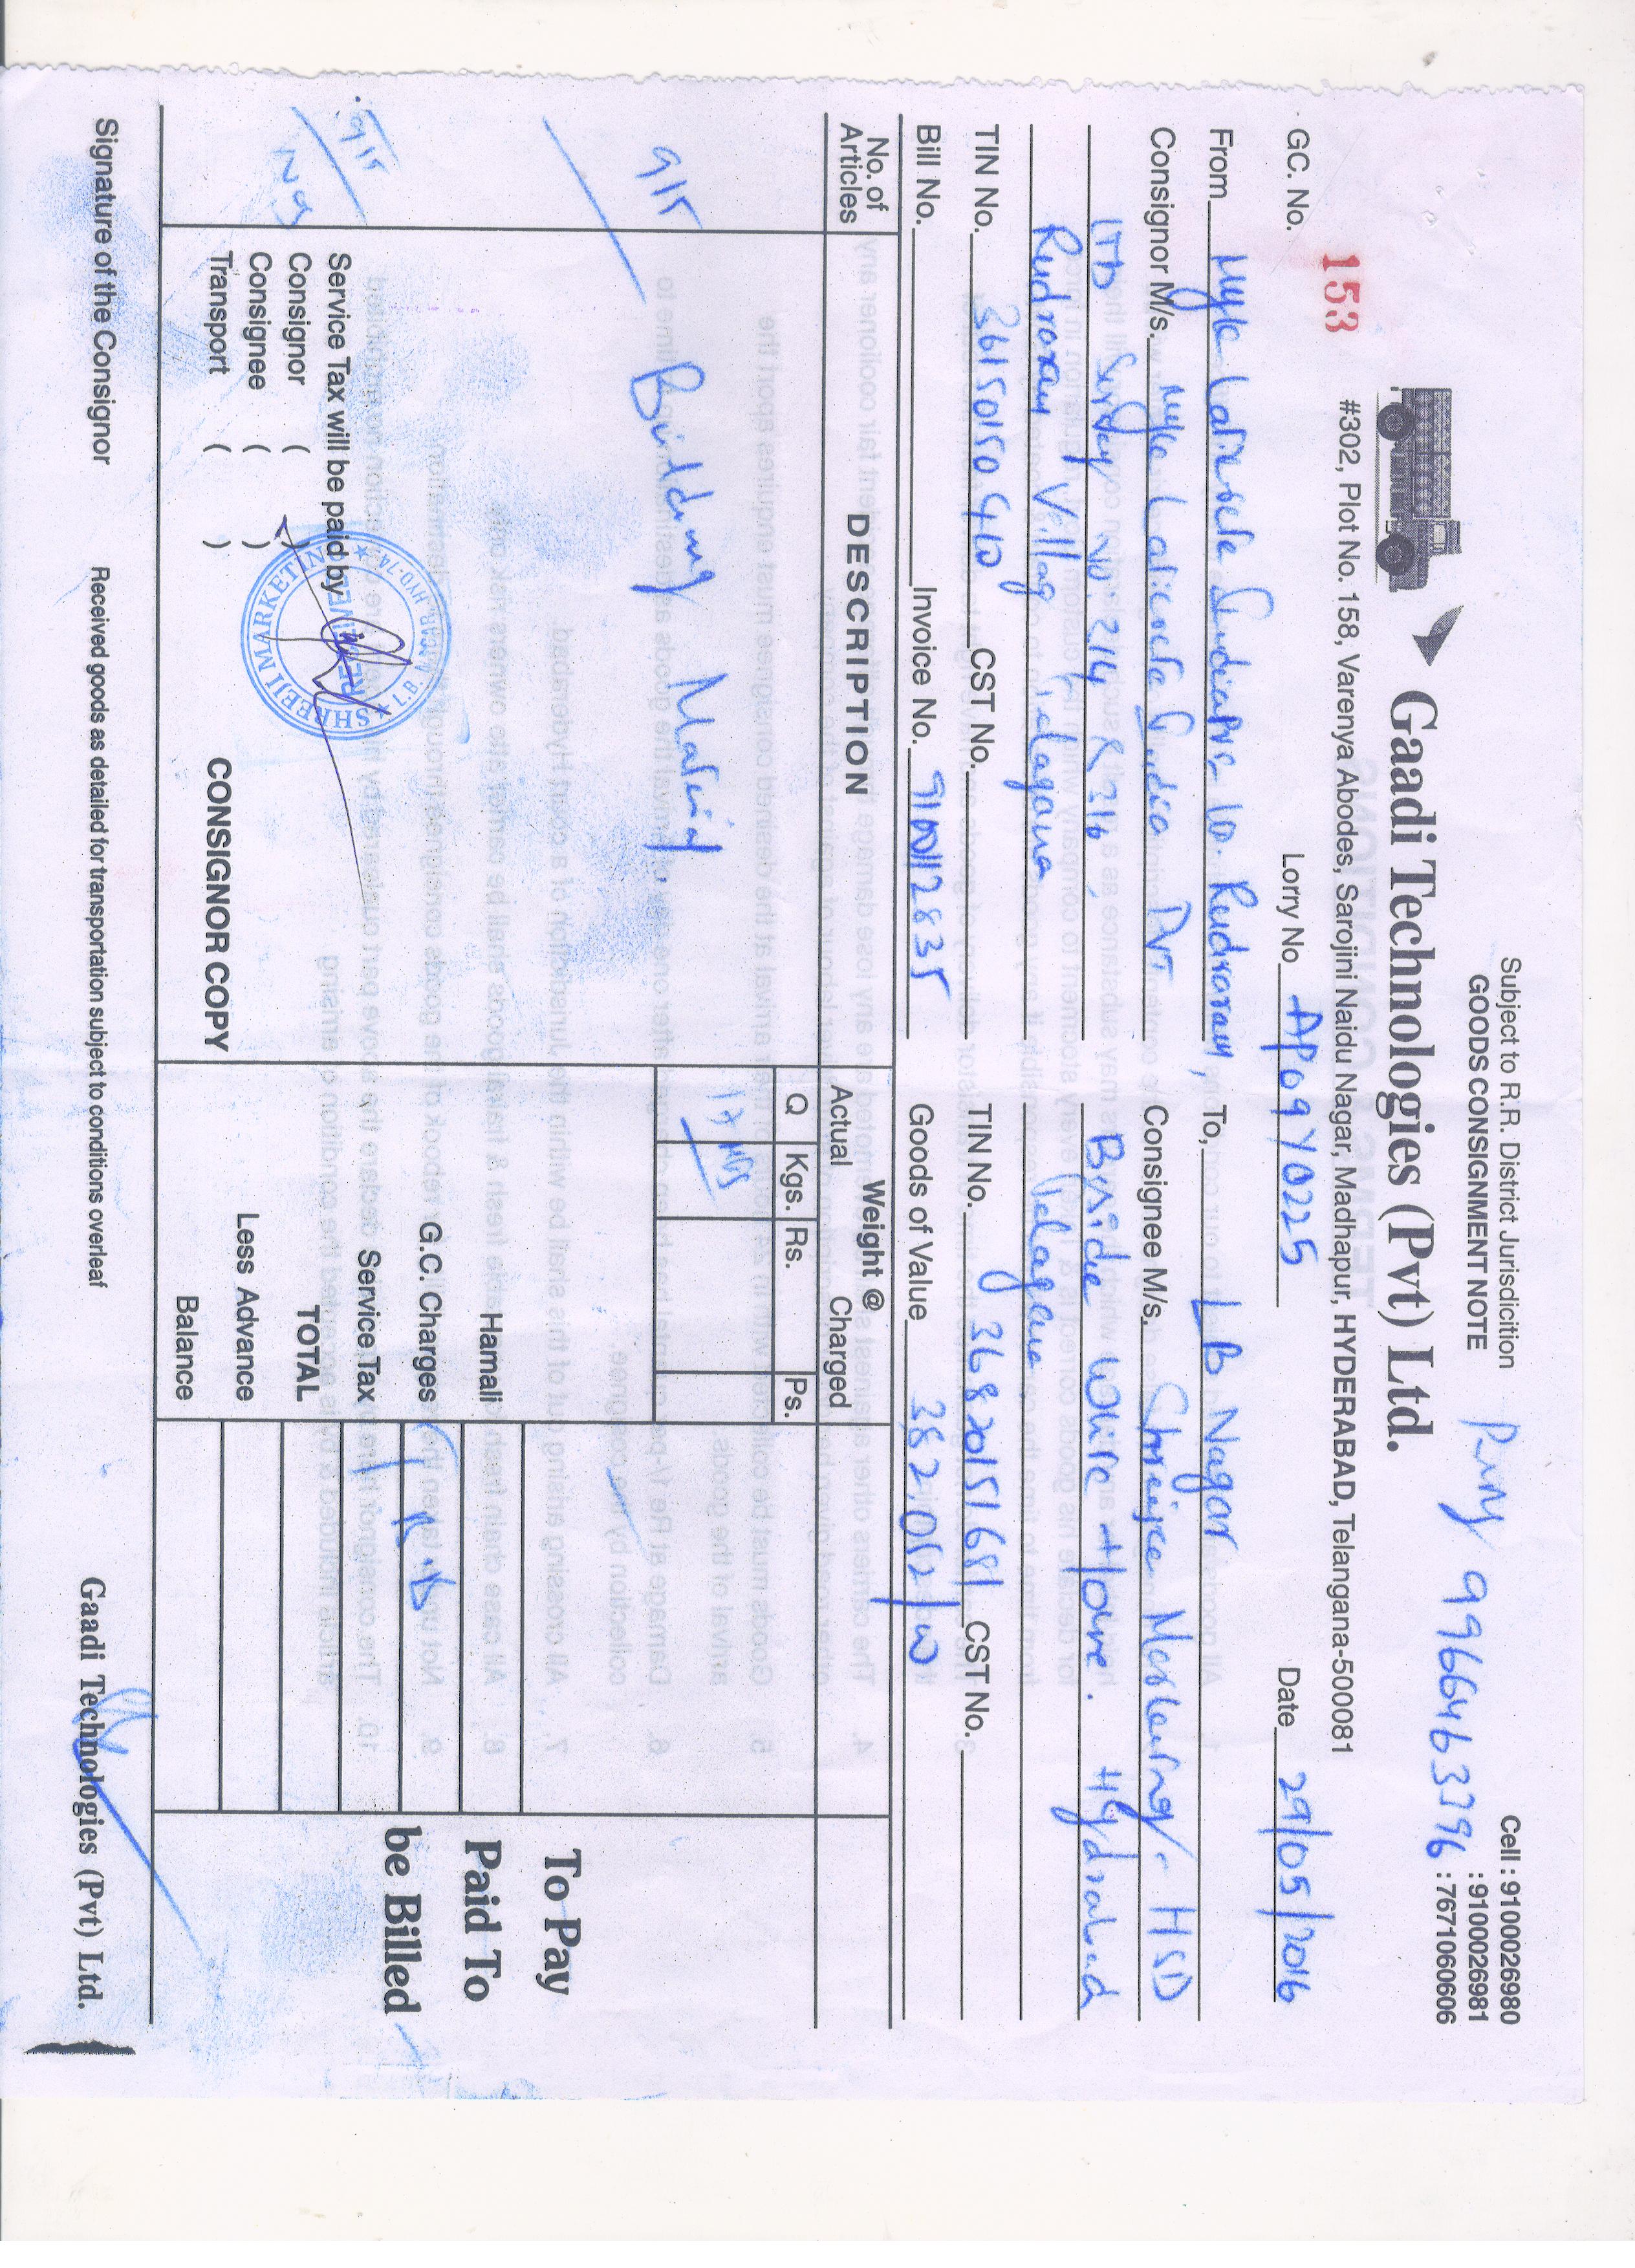 Subject to R.R. District Jurisdicition
GOODS CONSIGNMENT NOTE
Cell : 9100026980
: 9100026981
: 7671060606
9966463396
Gaadi Technologies (Pvt) Ltd.
#302, Plot No. 158, Varenya Abodes, Sarojini Naidu Nagar, Madhapur, HYDERABAD, Telangana-500081
GC. No. 153 Lorry No AP09Y0225 Date 29/05/2016
From Rudraram, To, L B Nagar
Consignor M/s. Pvt Consignee M/s. HSD
LTD No. 214 & 216, Byside White House. Hydrabad
Rudraram Village Telagana Telagana
TIN No. 36150150410 CST No. TIN No. 36820151681 CST No.
Bill No. Invoice No. 9100112835 Goods of Value 382,052/w
No. of Articles DESCRIPTION Weight @
Actual Charged
Q Kgs. Rs. Ps.
915 Building Matrial. 17
Hamali
G.C. Charges
Service Tax
TOTAL
Less Advance
Balance
To Pay
Paid To
be Billed
915
Nos
Service Tax will be paid by
Consignor ( )
Consignee ( )
Transport ( )
SHREEJI MARKETING
L.B. NAGAR, HYD-74
CONSIGNOR COPY
Signature of the Consignor Received goods as detailed for transportation subject to conditions overleaf Gaadi Technologies (Pvt) Ltd.